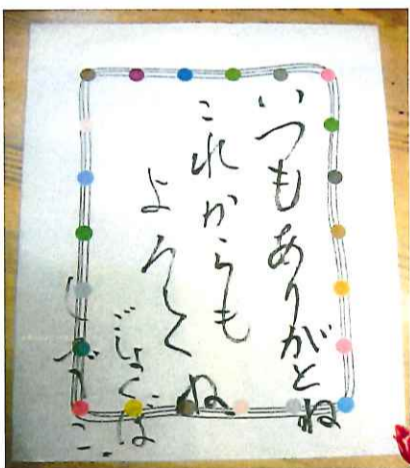 いつもありがとね
これからも
よろしくね